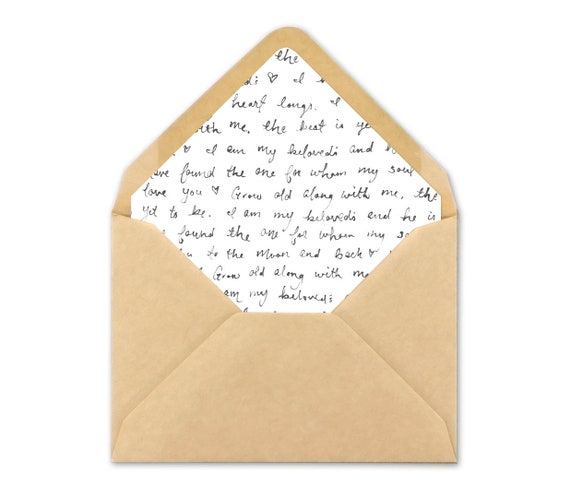 the
♡ I
heart longs. I
with me, the best is ye
♡ I am my beloved's and h
have found the one for whom my sou
love you ♡ Grow old along with me, the
yet to be. I am my beloved's and he is
found the one for whom my so
to the moon and back ♡
Grow old along with me
am my beloved's